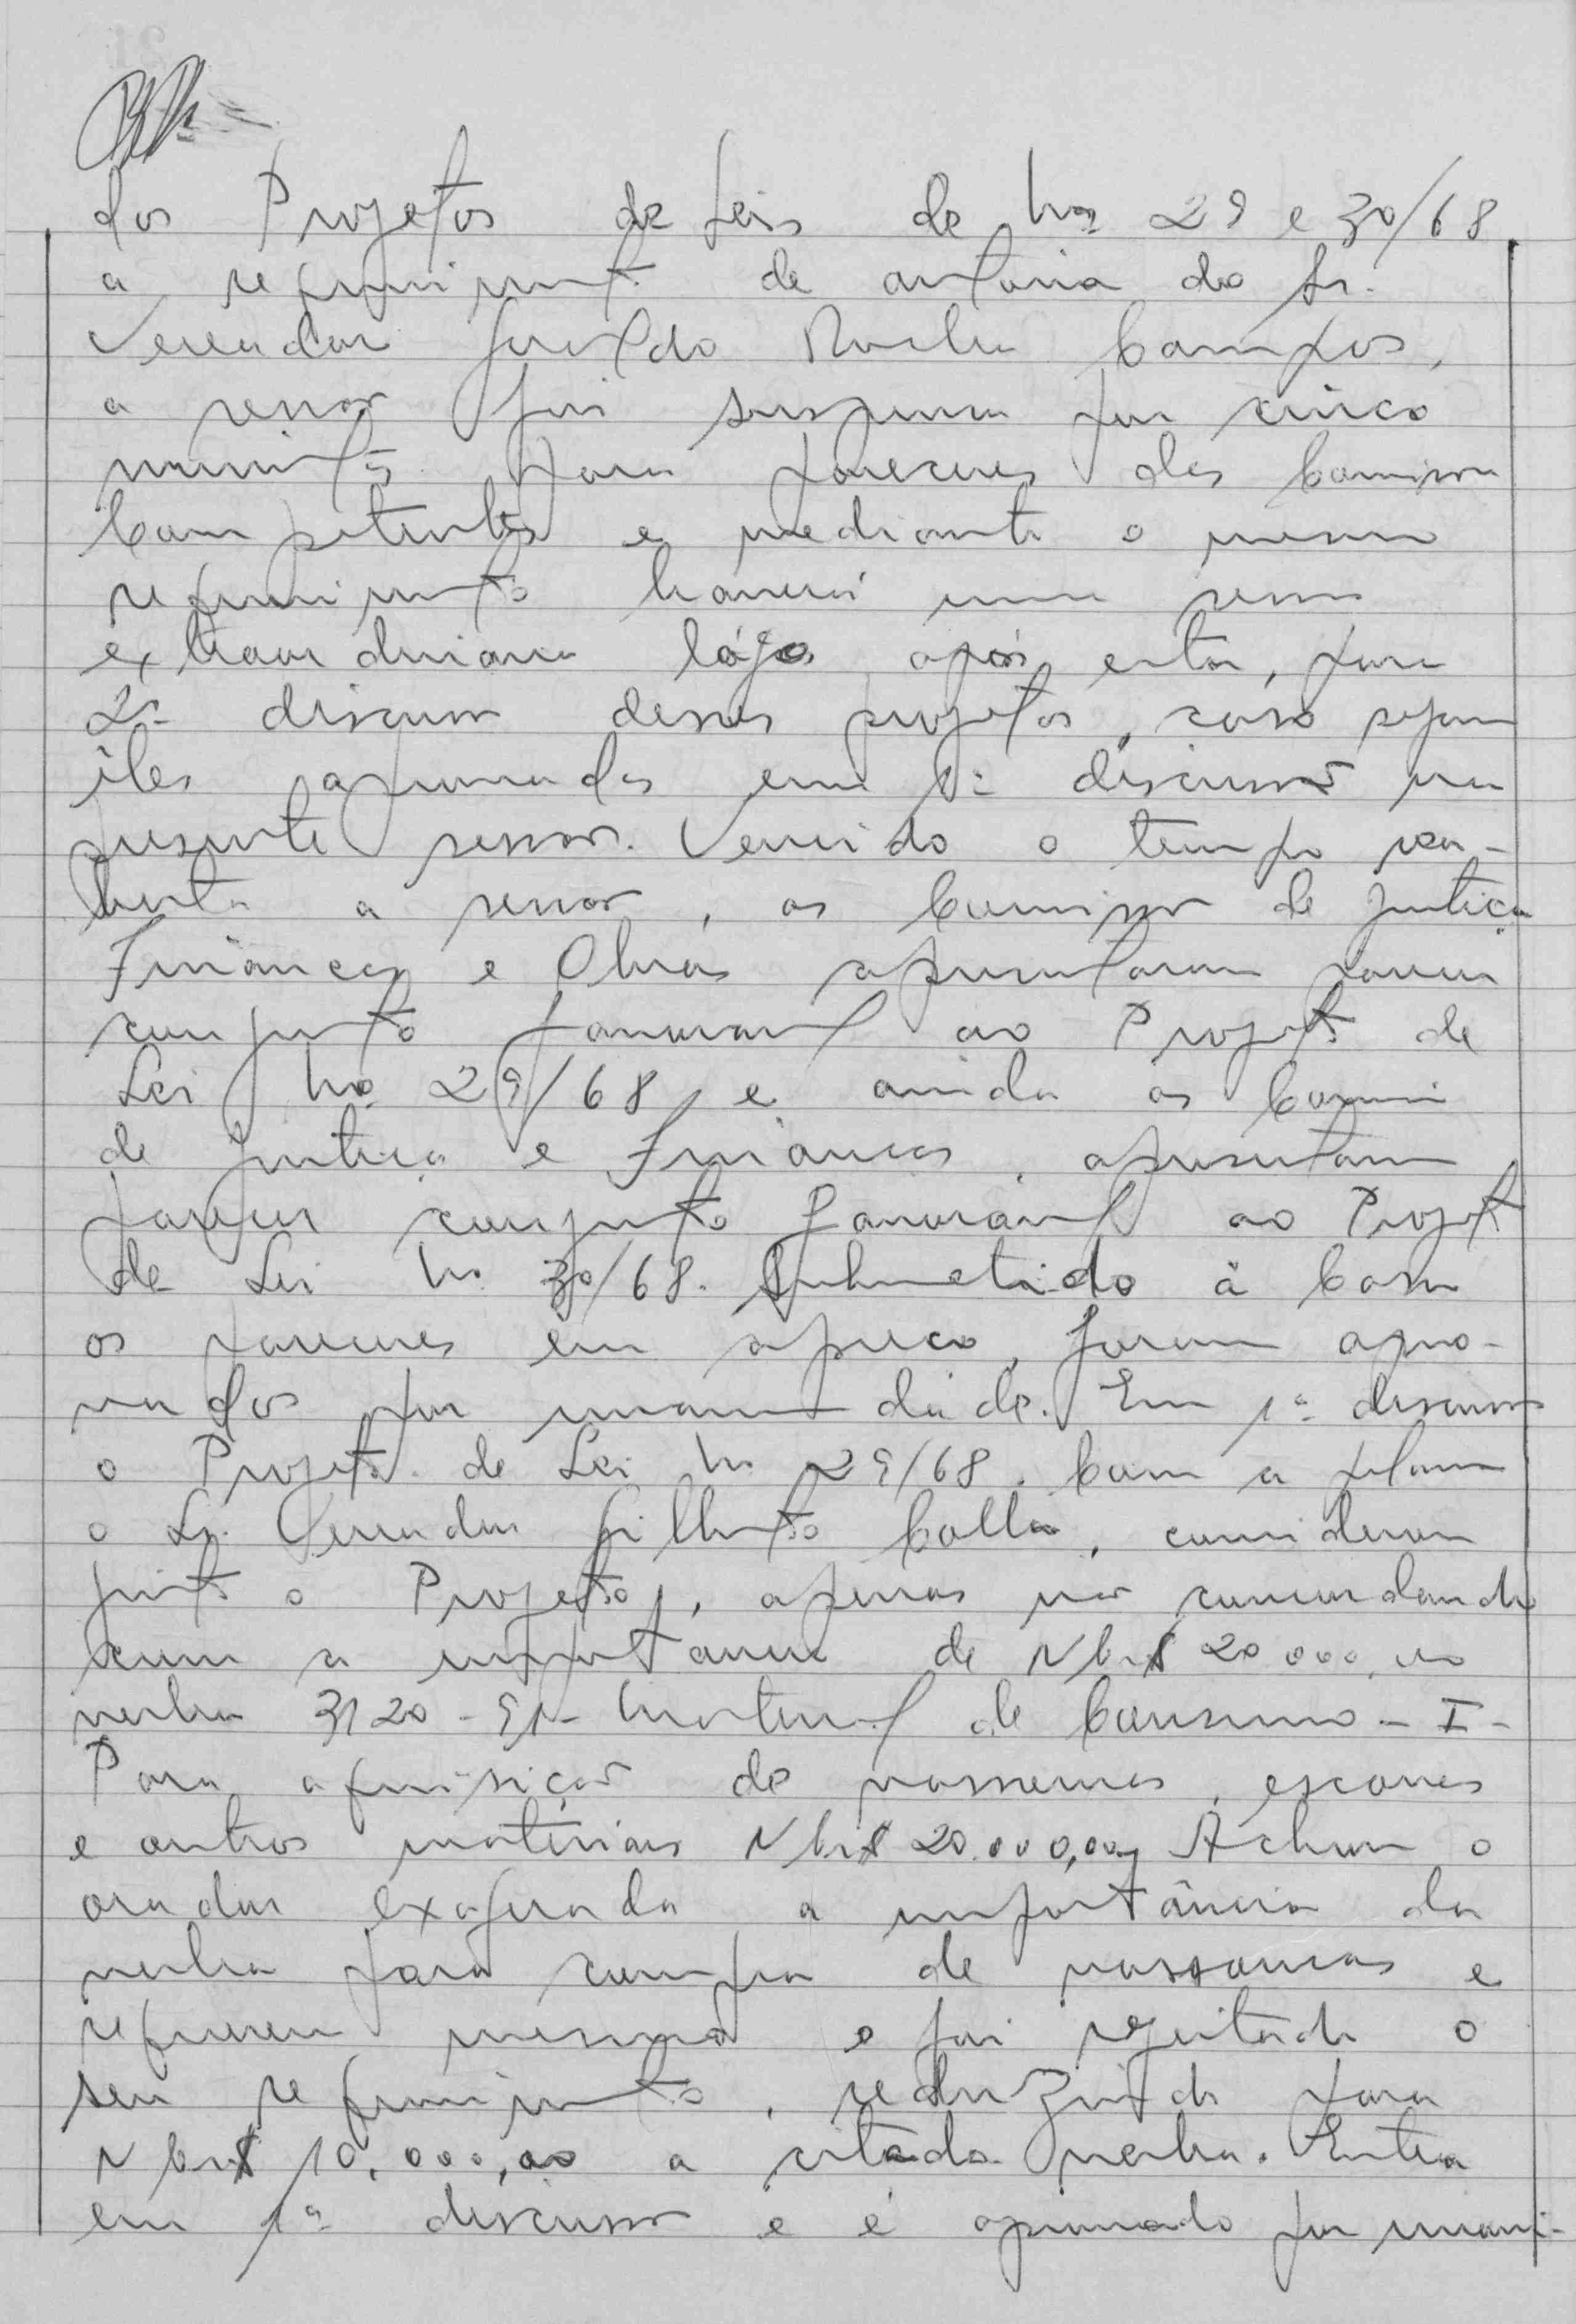 dos Projetos de Leis de Nos 29 e 30/68
a requerimento de autoria do Sr.
Vereador Geraldo Rocha Campos,
a sessão foi suspensa por cinco
minutos para pareceres das Comissões
Competentes e mediante o mesmo
requerimento haverá uma sessão
extraordinária lógo após esta, para
2ª discussão desses projetos, caso sejam
êles aprovados em 1ª discussão na
presente sessão. Vencido o tempo rea-
berta a sessão, as Comissões de Justiça
Finanças e Obras apresentaram parecer
conjunto favoravel ao Projeto de
Lei No 29/68 e ainda as Comissões
de Justiça e Finanças, apresentam
parecer conjunto favoravel ao Projeto
de Lei No 30/68. Submetido à Casa
os pareceres em aprêço, foram apro-
vados por unanimidade. Em 1ª discussão
o Projeto de Lei No 29/68. Com a palavra
o Sr. Vereador Gilberto Colla, considerou
justo o Projeto, apenas não concordando
com a importancia de NCr$ 20.000,00
verba 3120-91- Material de Consumo - I -
Para aquisição de vassouras, escovas
e outros matériais NCr$ 20.000,00, Achou o
orador exagerada a importância da
verba para compra de vassouras e
requereu mesmo e foi rejeitado o
seu requerimento, reduzindo para
NCr$ 10.000,00 a citada verba. Entra
em 1ª discussão e é aprovado por unani-